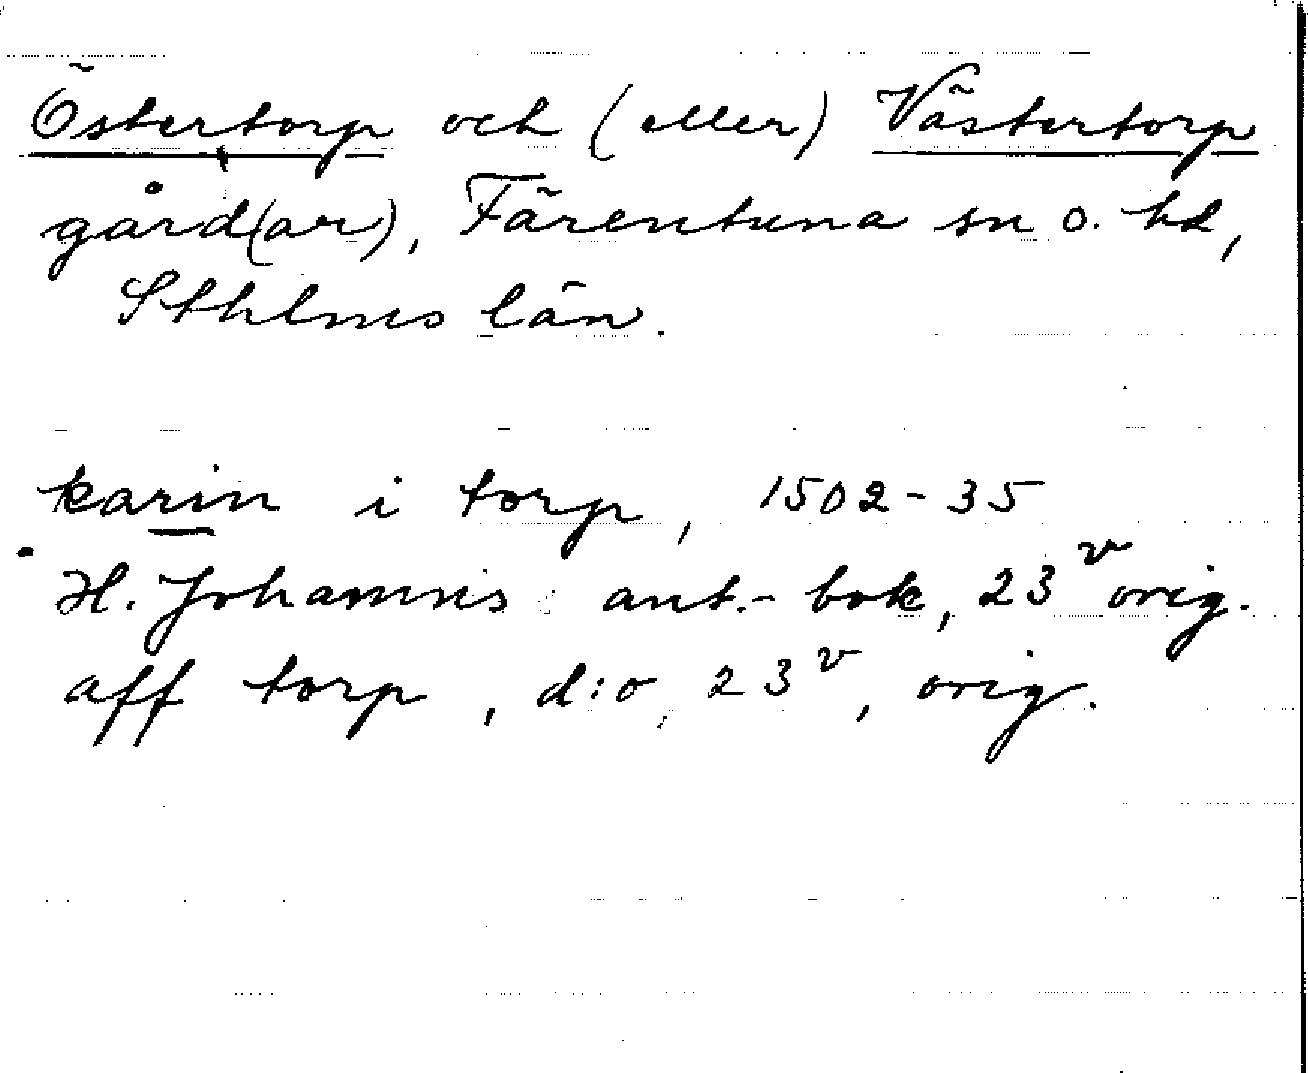 Östertorp och (eller) Västertorp
gård(ar), Färentuna sn o. hd,
Sthlms län.
karin i torp, 1502-35
H. Johannis ant.- bok, 23v orig.
aff torp, d:o, 23v, orig.